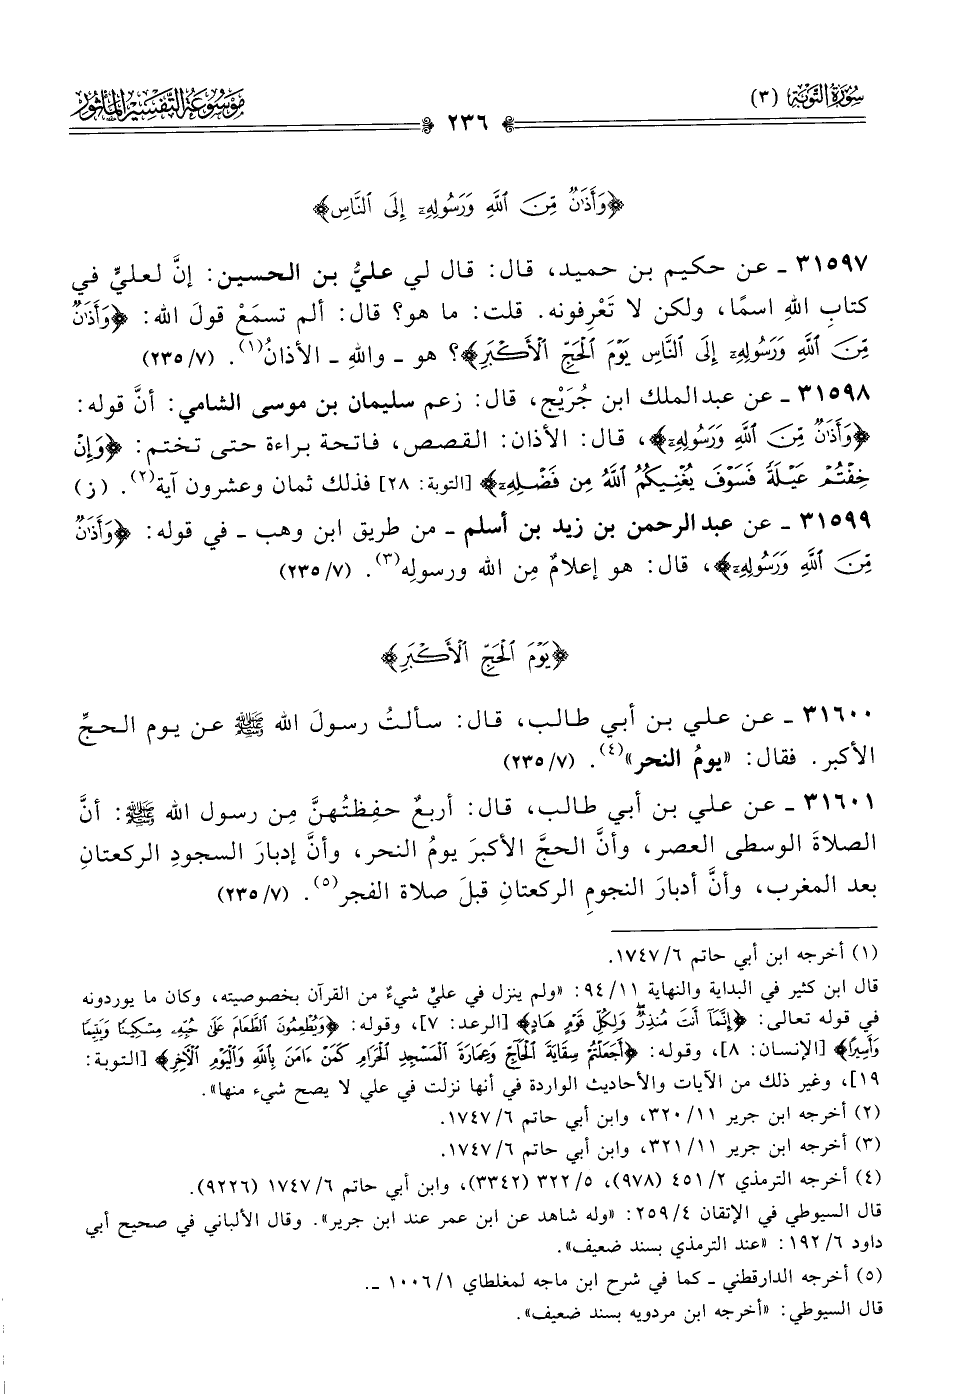 سُورَةُ التَّوْبَة (٣)
٢٣٦
مَوْسُوعَة التَّفْسِير المَأْثُور
﴿وَأَذَٰنٌ مِّنَ ٱللَّهِ وَرَسُولِهِۦٓ إِلَى ٱلنَّاسِ﴾
٣١٥٩٧ ـ عن حكيم بن حميد، قال: قال لي عليُّ بن الحسين: إنَّ لعليٍّ في
كتابِ اللهِ اسمًا، ولكن لا تَعْرِفونه. قلت: ما هو؟ قال: ألم تسمَعْ قولَ الله: ﴿وَأَذَٰنٌ
مِّنَ ٱللَّهِ وَرَسُولِهِۦٓ إِلَى ٱلنَّاسِ يَوْمَ ٱلْحَجِّ ٱلْأَكْبَرِ﴾؟ هو ـ واللهِ ـ الأذانُ(١). (٢٣٥/٧)
٣١٥٩٨ ـ عن عبدالملك ابن جُرَيْج، قال: زعم سليمان بن موسى الشامي: أنَّ قوله:
﴿وَأَذَٰنٌ مِّنَ ٱللَّهِ وَرَسُولِهِۦٓ﴾، قال: الأذان: القصص، فاتحة براءة حتى تختم: ﴿وَإِنْ
خِفْتُمْ عَيْلَةً فَسَوْفَ يُغْنِيكُمُ ٱللَّهُ مِن فَضْلِهِۦٓ﴾ [التوبة: ٢٨] فذلك ثمان وعشرون آية(٢). (ز)
٣١٥٩٩ ـ عن عبدالرحمن بن زيد بن أسلم ـ من طريق ابن وهب ـ في قوله: ﴿وَأَذَٰنٌ
مِّنَ ٱللَّهِ وَرَسُولِهِۦٓ﴾، قال: هو إعلامٌ مِن الله ورسولِه(٣). (٢٣٥/٧)
﴿يَوْمَ ٱلْحَجِّ ٱلْأَكْبَرِ﴾
٣١٦٠٠ ـ عن علي بن أبي طالب، قال: سألتُ رسولَ الله ﷺ عن يوم الحجِّ
الأكبر. فقال: «يومُ النحر»(٤). (٢٣٥/٧)
٣١٦٠١ ـ عن علي بن أبي طالب، قال: أربعٌ حفِظتُهنَّ مِن رسول الله ﷺ: أنَّ
الصلاةَ الوسطى العصر، وأنَّ الحجَّ الأكبرَ يومُ النحر، وأنَّ إدبارَ السجودِ الركعتانِ
بعد المغرب، وأنَّ أدبارَ النجومِ الركعتانِ قبلَ صلاة الفجر(٥). (٢٣٥/٧)
(١) أخرجه ابن أبي حاتم ١٧٤٧/٦.
قال ابن كثير في البداية والنهاية ٩٤/١١: «ولم ينزل في عليٍّ شيءٌ من القرآن بخصوصيته، وكان ما يوردونه
في قوله تعالى: ﴿إِنَّمَآ أَنتَ مُنذِرٌ ۖ وَلِكُلِّ قَوْمٍ هَادٍ﴾ [الرعد: ٧]، وقوله: ﴿وَيُطْعِمُونَ ٱلطَّعَامَ عَلَىٰ حُبِّهِۦ مِسْكِينًا وَيَتِيمًا
وَأَسِيرًا﴾ [الإنسان: ٨]، وقوله: ﴿أَجَعَلْتُمْ سِقَايَةَ ٱلْحَآجِّ وَعِمَارَةَ ٱلْمَسْجِدِ ٱلْحَرَامِ كَمَنْ ءَامَنَ بِٱللَّهِ وَٱلْيَوْمِ ٱلْأٓخِرِ﴾ [التوبة:
١٩]، وغير ذلك من الآيات والأحاديث الواردة في أنها نزلت في علي لا يصح شيء منها».
(٢) أخرجه ابن جرير ٣٢٠/١١، وابن أبي حاتم ١٧٤٧/٦.
(٣) أخرجه ابن جرير ٣٢١/١١، وابن أبي حاتم ١٧٤٧/٦.
(٤) أخرجه الترمذي ٤٥١/٢ (٩٧٨)، ٣٢٢/٥ (٣٣٤٢)، وابن أبي حاتم ١٧٤٧/٦ (٩٢٢٦).
قال السيوطي في الإتقان ٢٥٩/٤: «وله شاهد عن ابن عمر عند ابن جرير». وقال الألباني في صحيح أبي
داود ١٩٢/٦: «عند الترمذي بسند ضعيف».
(٥) أخرجه الدارقطني ـ كما في شرح ابن ماجه لمغلطاي ١٠٠٦/١ ـ.
قال السيوطي: «أخرجه ابن مردويه بسند ضعيف».